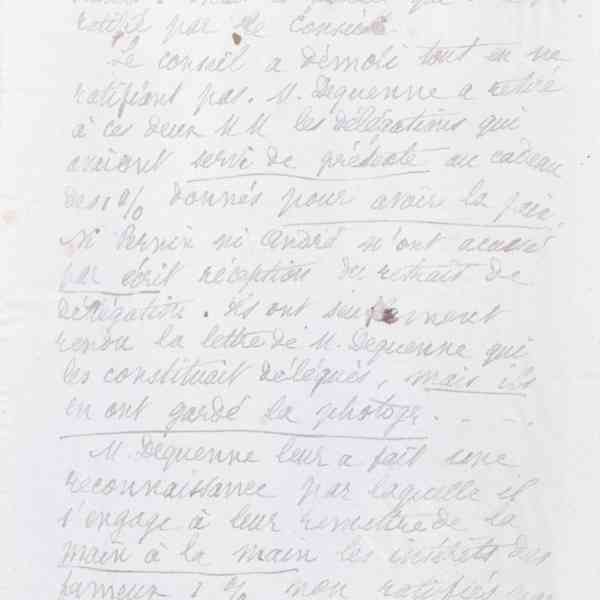 ratifié par le conseil.
Le conseil a démoli tout en ne
ratifiant pas. M. Dequenne a retiré
à ces deux MM les délégations qui
avaient servi de prétexte au cadeau
des 1 % donnés pour avoir la paix.
Ni Pernin ni André n'ont accusé
par écrit réception du retrait de
délégation. Ils ont seulement
rendu la lettre de M. Dequenne qui
les constituait délégués, mais ils
en ont gardé la photogr. - - -
M. Dequenne leur a fait une
reconnaissance par laquelle il
s'engage à leur remettre de la
main à la main les intérêts des
fameux 1 % non ratifiés